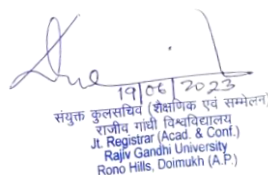 19/06/2023
संयुक्त कुलसचिव (शैक्षणिक एवं सम्मेलन)
राजीव गांधी विश्वविद्यालय
Jt. Registrar (Acad. & Conf.)
Rajiv Gandhi University
Rono Hills, Doimukh (A.P.)